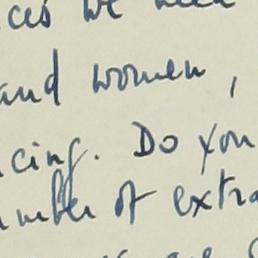 ces we need
and women,
cing. Do you
umber of extra